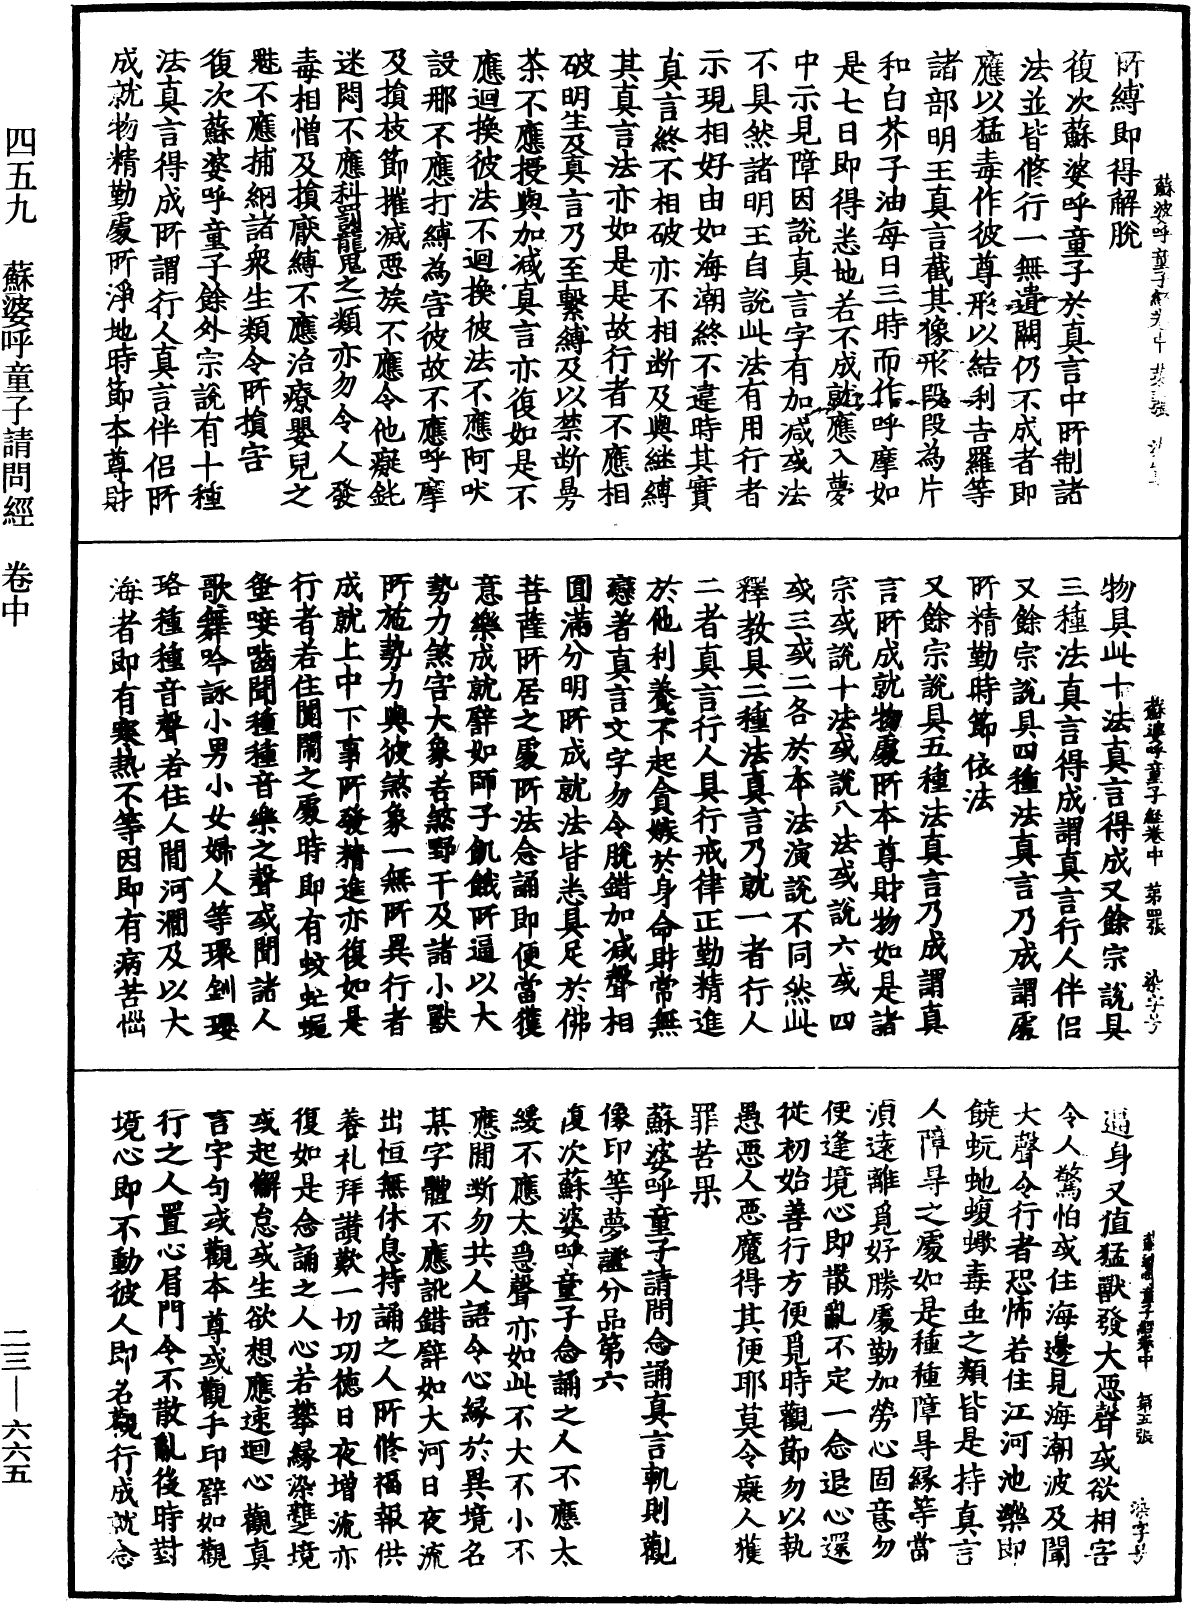 所縛即得解脫
復次蘇婆呼童子於真言中所制諸
法並皆修行一無遺闕仍不成者即
應以猛毒作彼尊形以結利吉羅等
諸部明王真言截其像形段段為片
和白芥子油每日三時而作呼摩如
是七日即得悉地若不成就應入夢
中示見障因說真言字有加減或法
不具然諸明王自說此法有用行者
示現相好由如海潮終不違時其實
真言終不相破亦不相斷及與繼縛
其真言法亦如是是故行者不應相
破明生及真言乃至繫縛及以禁斷曼
荼不應授與加減真言亦復如是不
應迴換彼法不迴換彼法不應阿吠
設那不應打縛為害彼故不應呼摩
及損枝節摧滅惡族不應令他癡鈋
迷悶不應科罰龍鬼之類亦勿令人發
毒相憎及損厭縛不應治療嬰兒之
魅不應捕網諸衆生類令所損害
復次蘇婆呼童子餘外宗說有十種
法真言得成所謂行人真言伴侶所
成就物精勤處所淨地時節本尊財
蘇婆呼童子經卷中 第四張 染字号
物具此十法真言得成又餘宗說具
三種法真言得成謂真言行人伴侶
又餘宗說具四種法真言乃成謂處
所精勤時節依法
又餘宗說具五種法真言乃成謂真
言所成就物處所本尊財物如是諸
宗或說十法或說八法或說六或四
或三或二各於本法演說不同然此
釋教具二種法真言乃就一者行人
二者真言行人具行戒律正勤精進
於他利養不起貪嫉於身命財常無
戀著真言文字勿令脫錯加減聲相
圓滿分明所成就法皆悉具足於佛
菩薩所居之處所法念誦即便當獲
意樂成就譬如師子飢餓所逼以大
勢力煞害大象若煞野干及諸小獸
所施勢力與彼煞象一無所異行者
成就上中下事所發精進亦復如是
行者若住閙鬧之處時即有蚊虻蝇
蚤唼嚙聞種種音樂之聲或聞諸人
歌舞吟詠小男小女婦人等環釧瓔
珞種種音聲若住人間河澗及以大
海者即有寒熱不等因即有病苦惱
蘇婆呼童子經卷中 第五張 染字号
逼身又值猛獸發大惡聲或欲相害
令人驚怕或住海邊見海潮波及聞
大聲令行者恐怖若住江河池樂即
饒蚖虵蝮蠍毒虫之類皆是持真言
人障㝵之處如是種種障㝵緣等當
湏遠離覓好勝處勤加勞心固意勿
便逢境心即散亂不定一念退心還
從初始善行方便覓時觀節勿以執
愚惡人惡魔得其便耶莫令癡人獲
罪苦果
蘇婆呼童子請問念誦真言軌則觀
像印等夢證分品第六
復次蘇婆呼童子念誦之人不應太
緩不應太急聲亦如此不大不小不
應閒斷勿共人語令心緣於異境名
某字體不應訛錯譬如大河日夜流
出恒無休息持誦之人所修福報供
養礼拜讃歎一切功德日夜增流亦
復如是念誦之人心若攀緣染雜之境
或起懈怠或生欲想應速迴心觀真
言字句或觀本尊或觀手印譬如觀
行之人置心眉門令不散亂後時對
境心即不動彼人即名觀行成就念
四五九 蘇婆呼童子請問經 卷中
二三—六六五